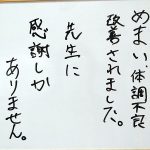 めまい、体調不良
改善されました。
先生に
感謝しか
ありません。